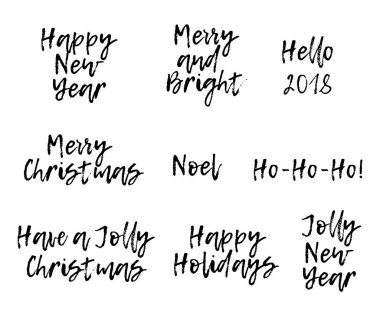 Happy
New
Year
Merry
and
Bright
Hello
2018
Merry
Christmas
Noel
Ho-Ho-Ho!
Have a Jolly
Christmas
Happy
Holidays
Jolly
New
Year